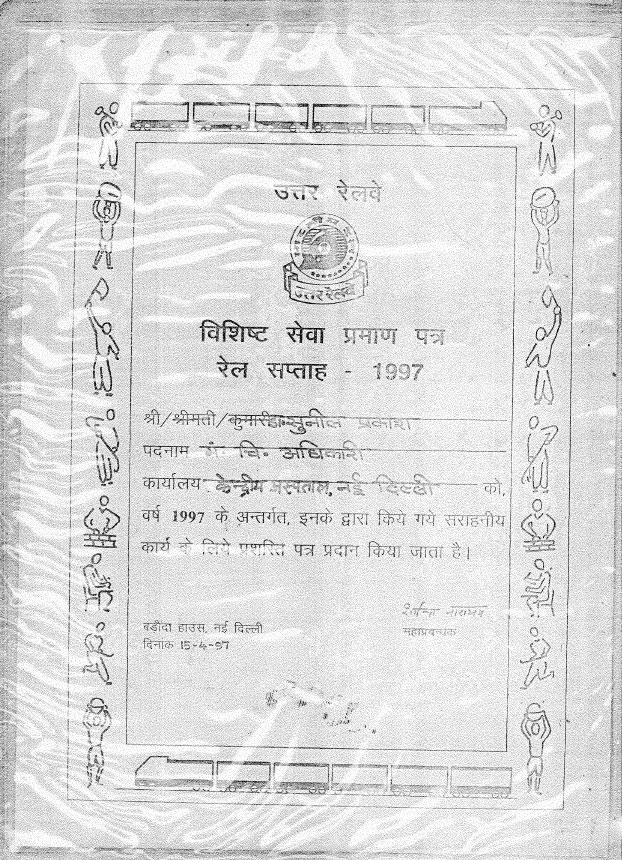 उत्तर रेलवे
उत्तर रेलवे
विशिष्ट सेवा प्रमाण पत्र
रेल सप्ताह - 1997
श्री/श्रीमती/कुमारी डा० सुनील प्रकाश
पदनाम मं. चि. अधिकारी
कार्यालय केन्द्रीय अस्पताल, नई दिल्ली को,
वर्ष 1997 के अन्तर्गत, इनके द्वारा किये गये सराहनीय
कार्य के लिये प्रशस्ति पत्र प्रदान किया जाता है।
बड़ौदा हाउस, नई दिल्ली
महाप्रबन्धक
दिनांक 15-4-97